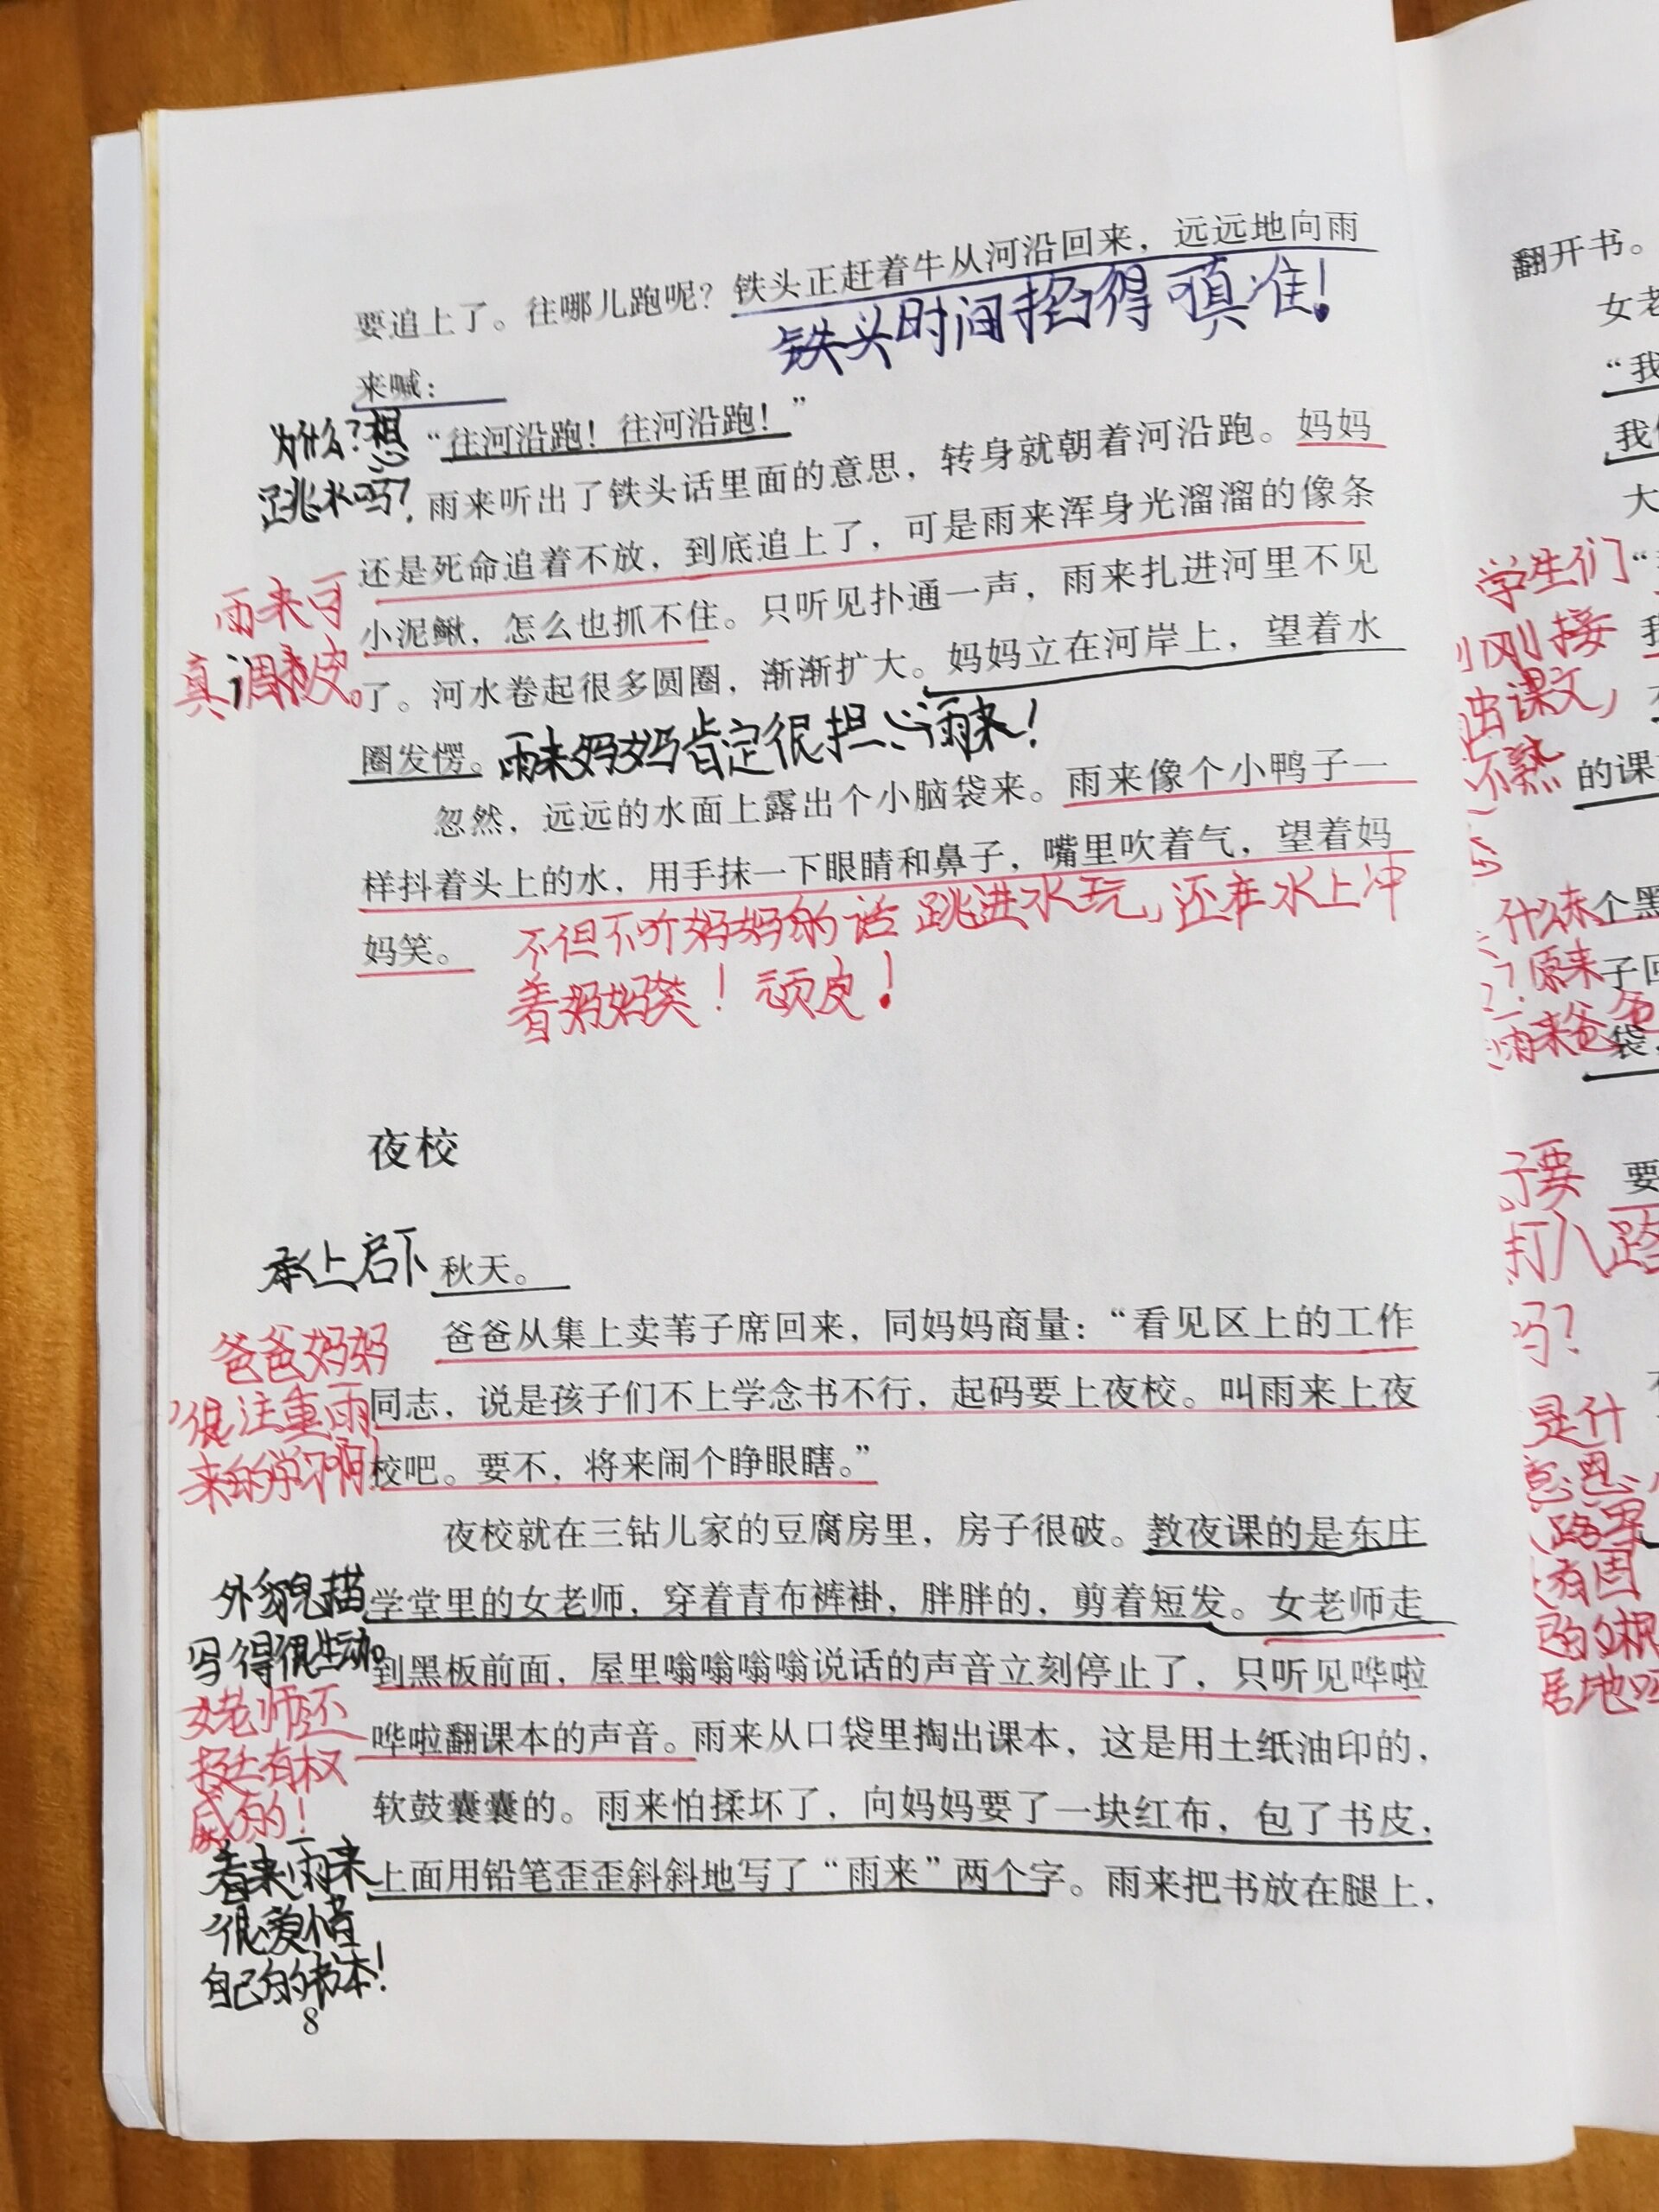 要追上了。往哪儿跑呢？铁头正赶着牛从河沿回来，远远地向雨
铁头时间掐得可真准！
来喊：
为什么？想
跳水吗？
“往河沿跑！往河沿跑！”
雨来听出了铁头话里面的意思，转身就朝着河沿跑。妈妈
还是死命追着不放，到底追上了，可是雨来浑身光溜溜的像条
雨来可
真调皮。
小泥鳅，怎么也抓不住。只听见扑通一声，雨来扎进河里不见
了。河水卷起很多圆圈，渐渐扩大。妈妈立在河岸上，望着水
圈发愣。
雨来妈妈肯定很担心雨来！
忽然，远远的水面上露出个小脑袋来。雨来像个小鸭子一
样抖着头上的水，用手抹一下眼睛和鼻子，嘴里吹着气，望着妈
妈笑。
不但不听妈妈的话跳进水玩，还在水上冲
着妈妈笑！顽皮！
夜校
承上启下
秋天。
爸爸从集上卖苇子席回来，同妈妈商量：“看见区上的工作
同志，说是孩子们不上学念书不行，起码要上夜校。叫雨来上夜
校吧。要不，将来闹个睁眼瞎。”
爸爸妈妈
很注重雨
来的学习啊！
夜校就在三钻儿家的豆腐房里，房子很破。教夜课的是东庄
学堂里的女老师，穿着青布裤褂，胖胖的，剪着短发。女老师走
到黑板前面，屋里嗡嗡嗡嗡说话的声音立刻停止了，只听见哗啦
哗啦翻课本的声音。雨来从口袋里掏出课本，这是用土纸油印的，
软鼓囊囊的。雨来怕揉坏了，向妈妈要了一块红布，包了书皮，
上面用铅笔歪歪斜斜地写了“雨来”两个字。雨来把书放在腿上，
外貌描
写得很生动
女老师还
挺有权
威的！
看来雨来
很爱惜
自己的书本！
8
翻开书。
女老
“我
我们
大
学生们
刚接
出课文，
不熟
的课
什么
个黑
原来
子回
雨来爸爸
袋，
要
打八路
吗？
是什
意思
路军
有固
的根
居地吗